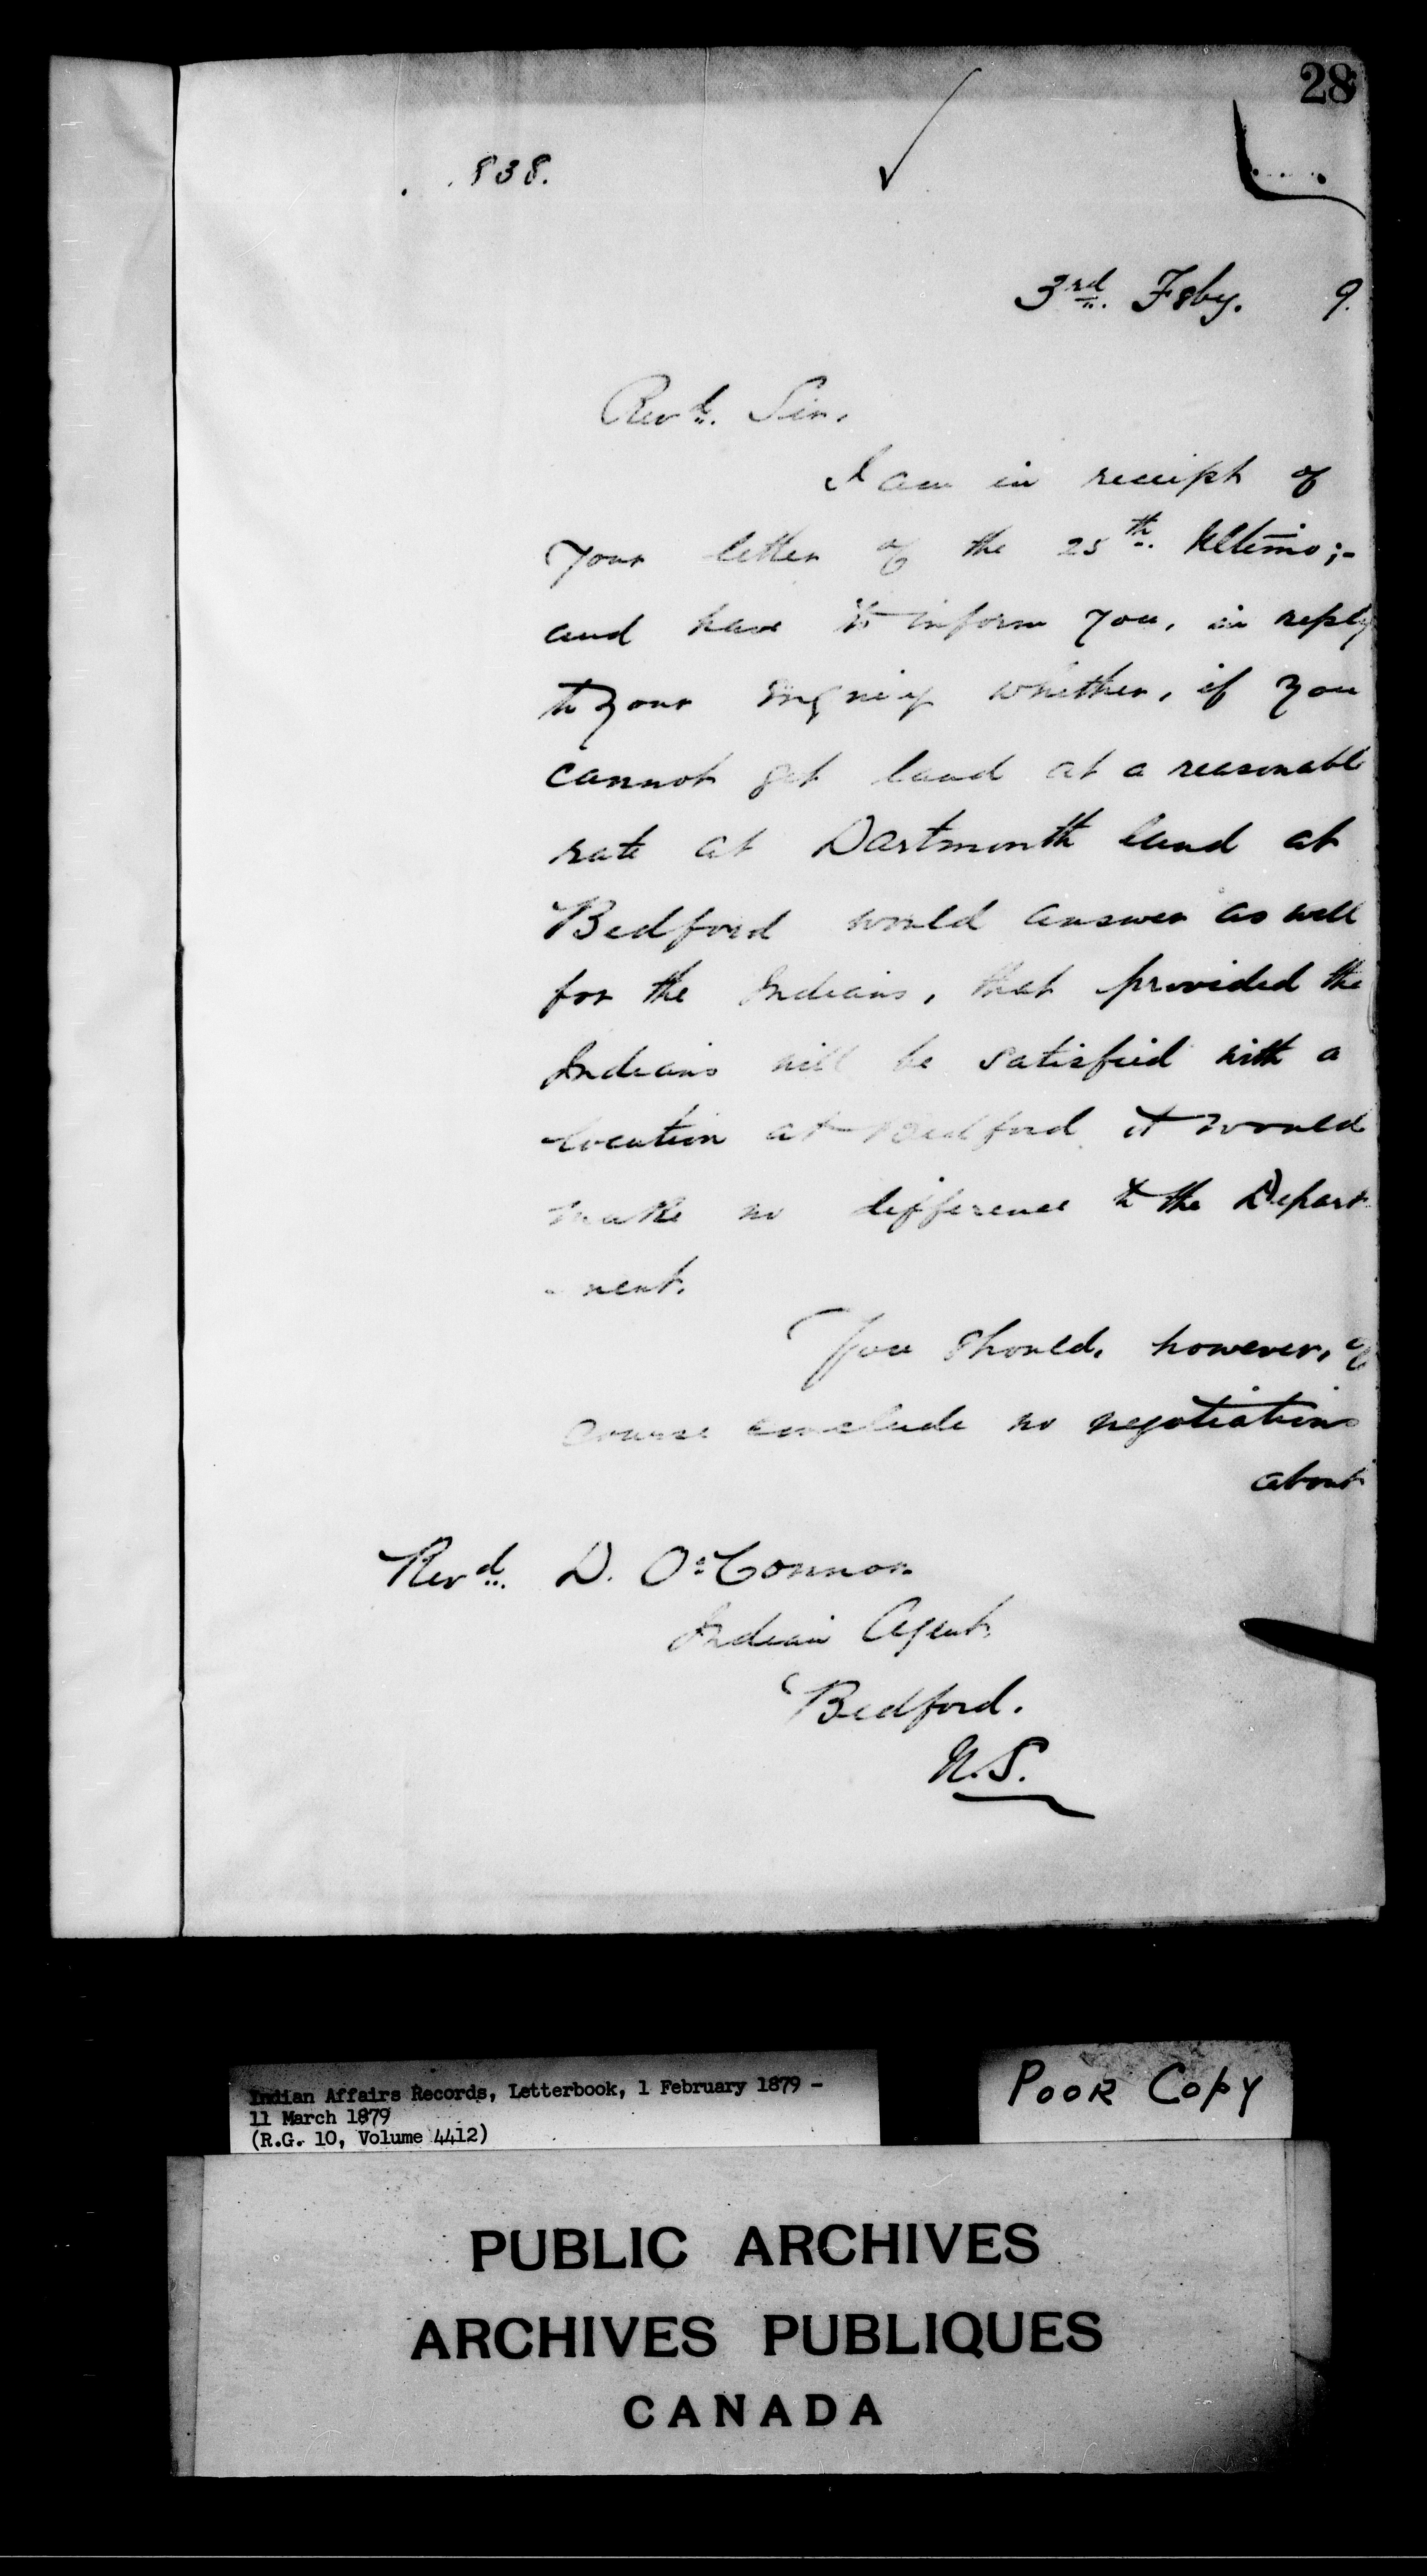 28
838.
3rd. Feby. 9.
Revd. Sir,
I am in receipt of
your letter of the 25th. Ultimo;-
and have to inform you, in reply
to your inquiry whether, if you
cannot get land at a reasonable
rate at Dartmouth land at
Bedford would answer as well
for the Indians, that provided the
Indians will be satisfied with a
location at Bedford it would
make no difference to the Depart
-ment.
You should, however, of
course conclude no negotiations
about
Revd. D. O'Connor
Indian Agent,
Bedford.
N.S.
Indian Affairs Records, Letterbook, 1 February 1879 -
11 March 1879
(R.G. 10, Volume 4412)
POOR COPY
PUBLIC ARCHIVES
ARCHIVES PUBLIQUES
CANADA